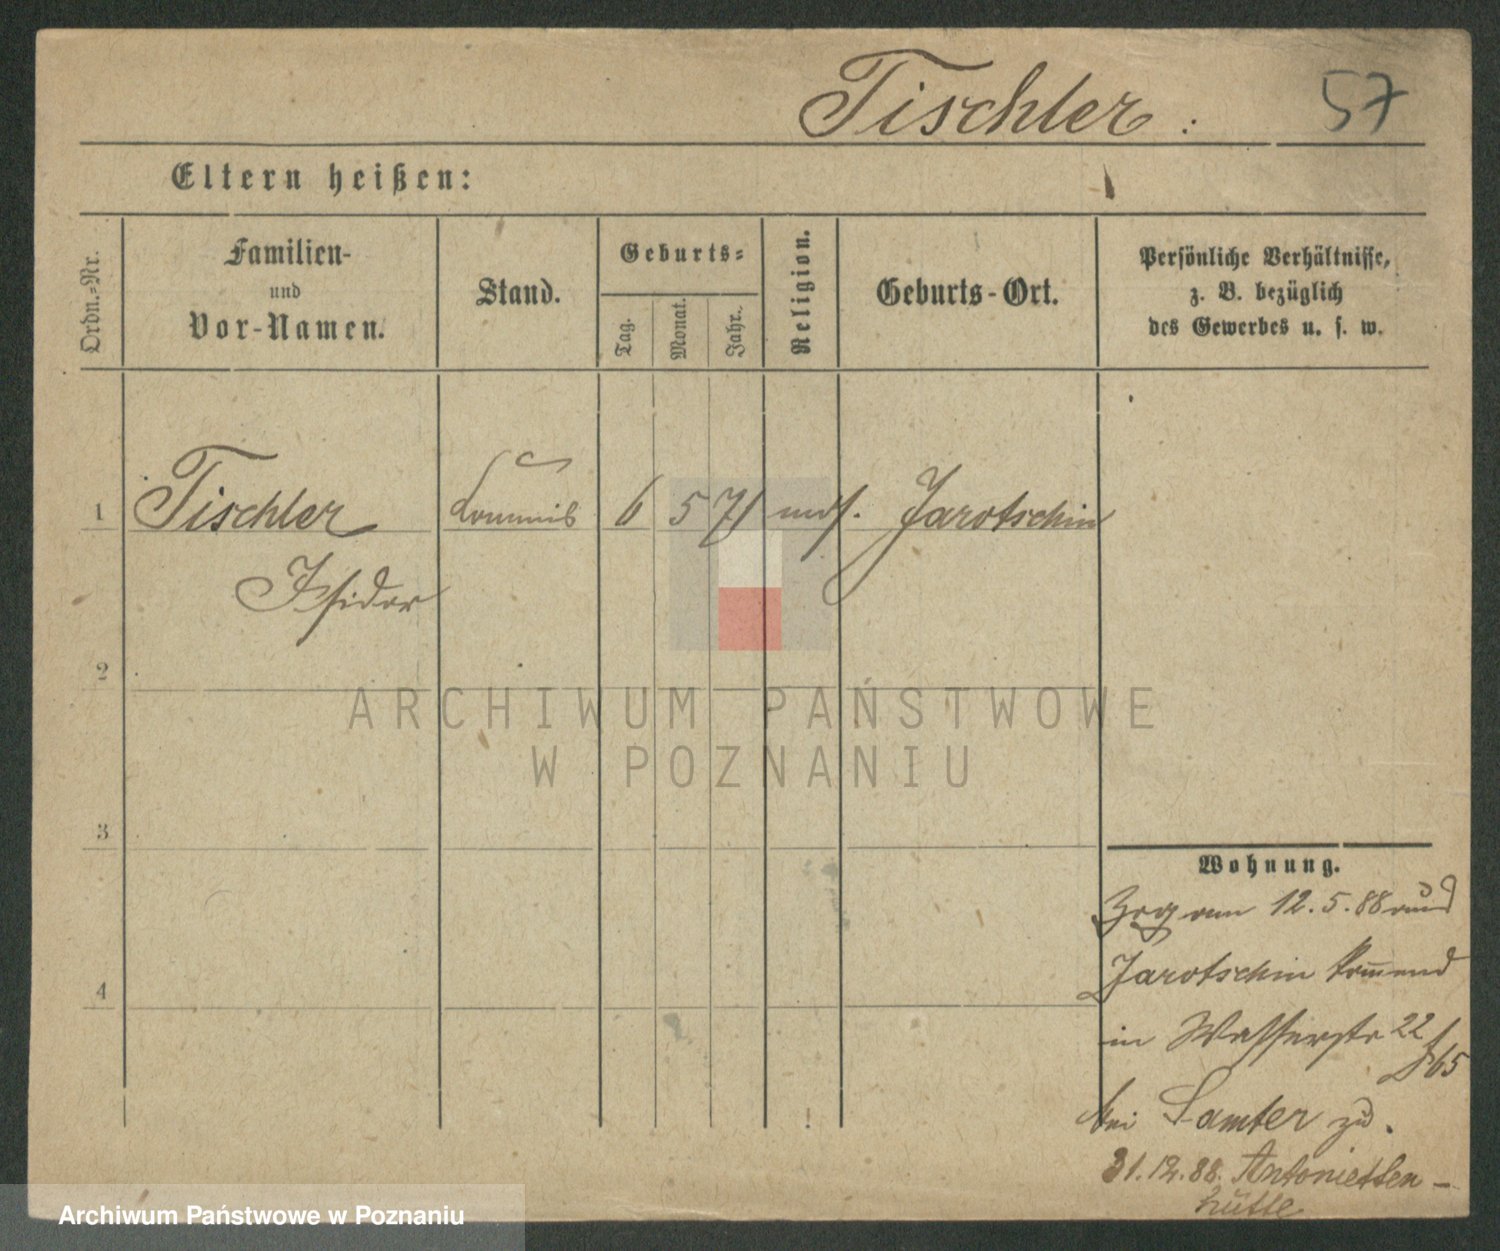 Tischler : 57
Eltern heißen:
Ordn.-Nr.
Familien-
und
Vor-Namen.
Stand.
Geburts-
Tag.
Monat.
Jahr.
Religion.
Geburts-Ort.
Persönliche Verhältnisse,
z. B. bezüglich
des Gewerbes u. s. w.
1 Tischler Commis 6 5 71 mos. Jarotschin
Isidor
2
3
4
Wohnung.
Zog am 12.5.88 aus
Jarotschin kommend
in Wasserstr 22
65
bei Samter zu.
31.12.88. Antonien-
hütte
ARCHIWUM PAŃSTWOWE
W POZNANIU
Archiwum Państwowe w Poznaniu